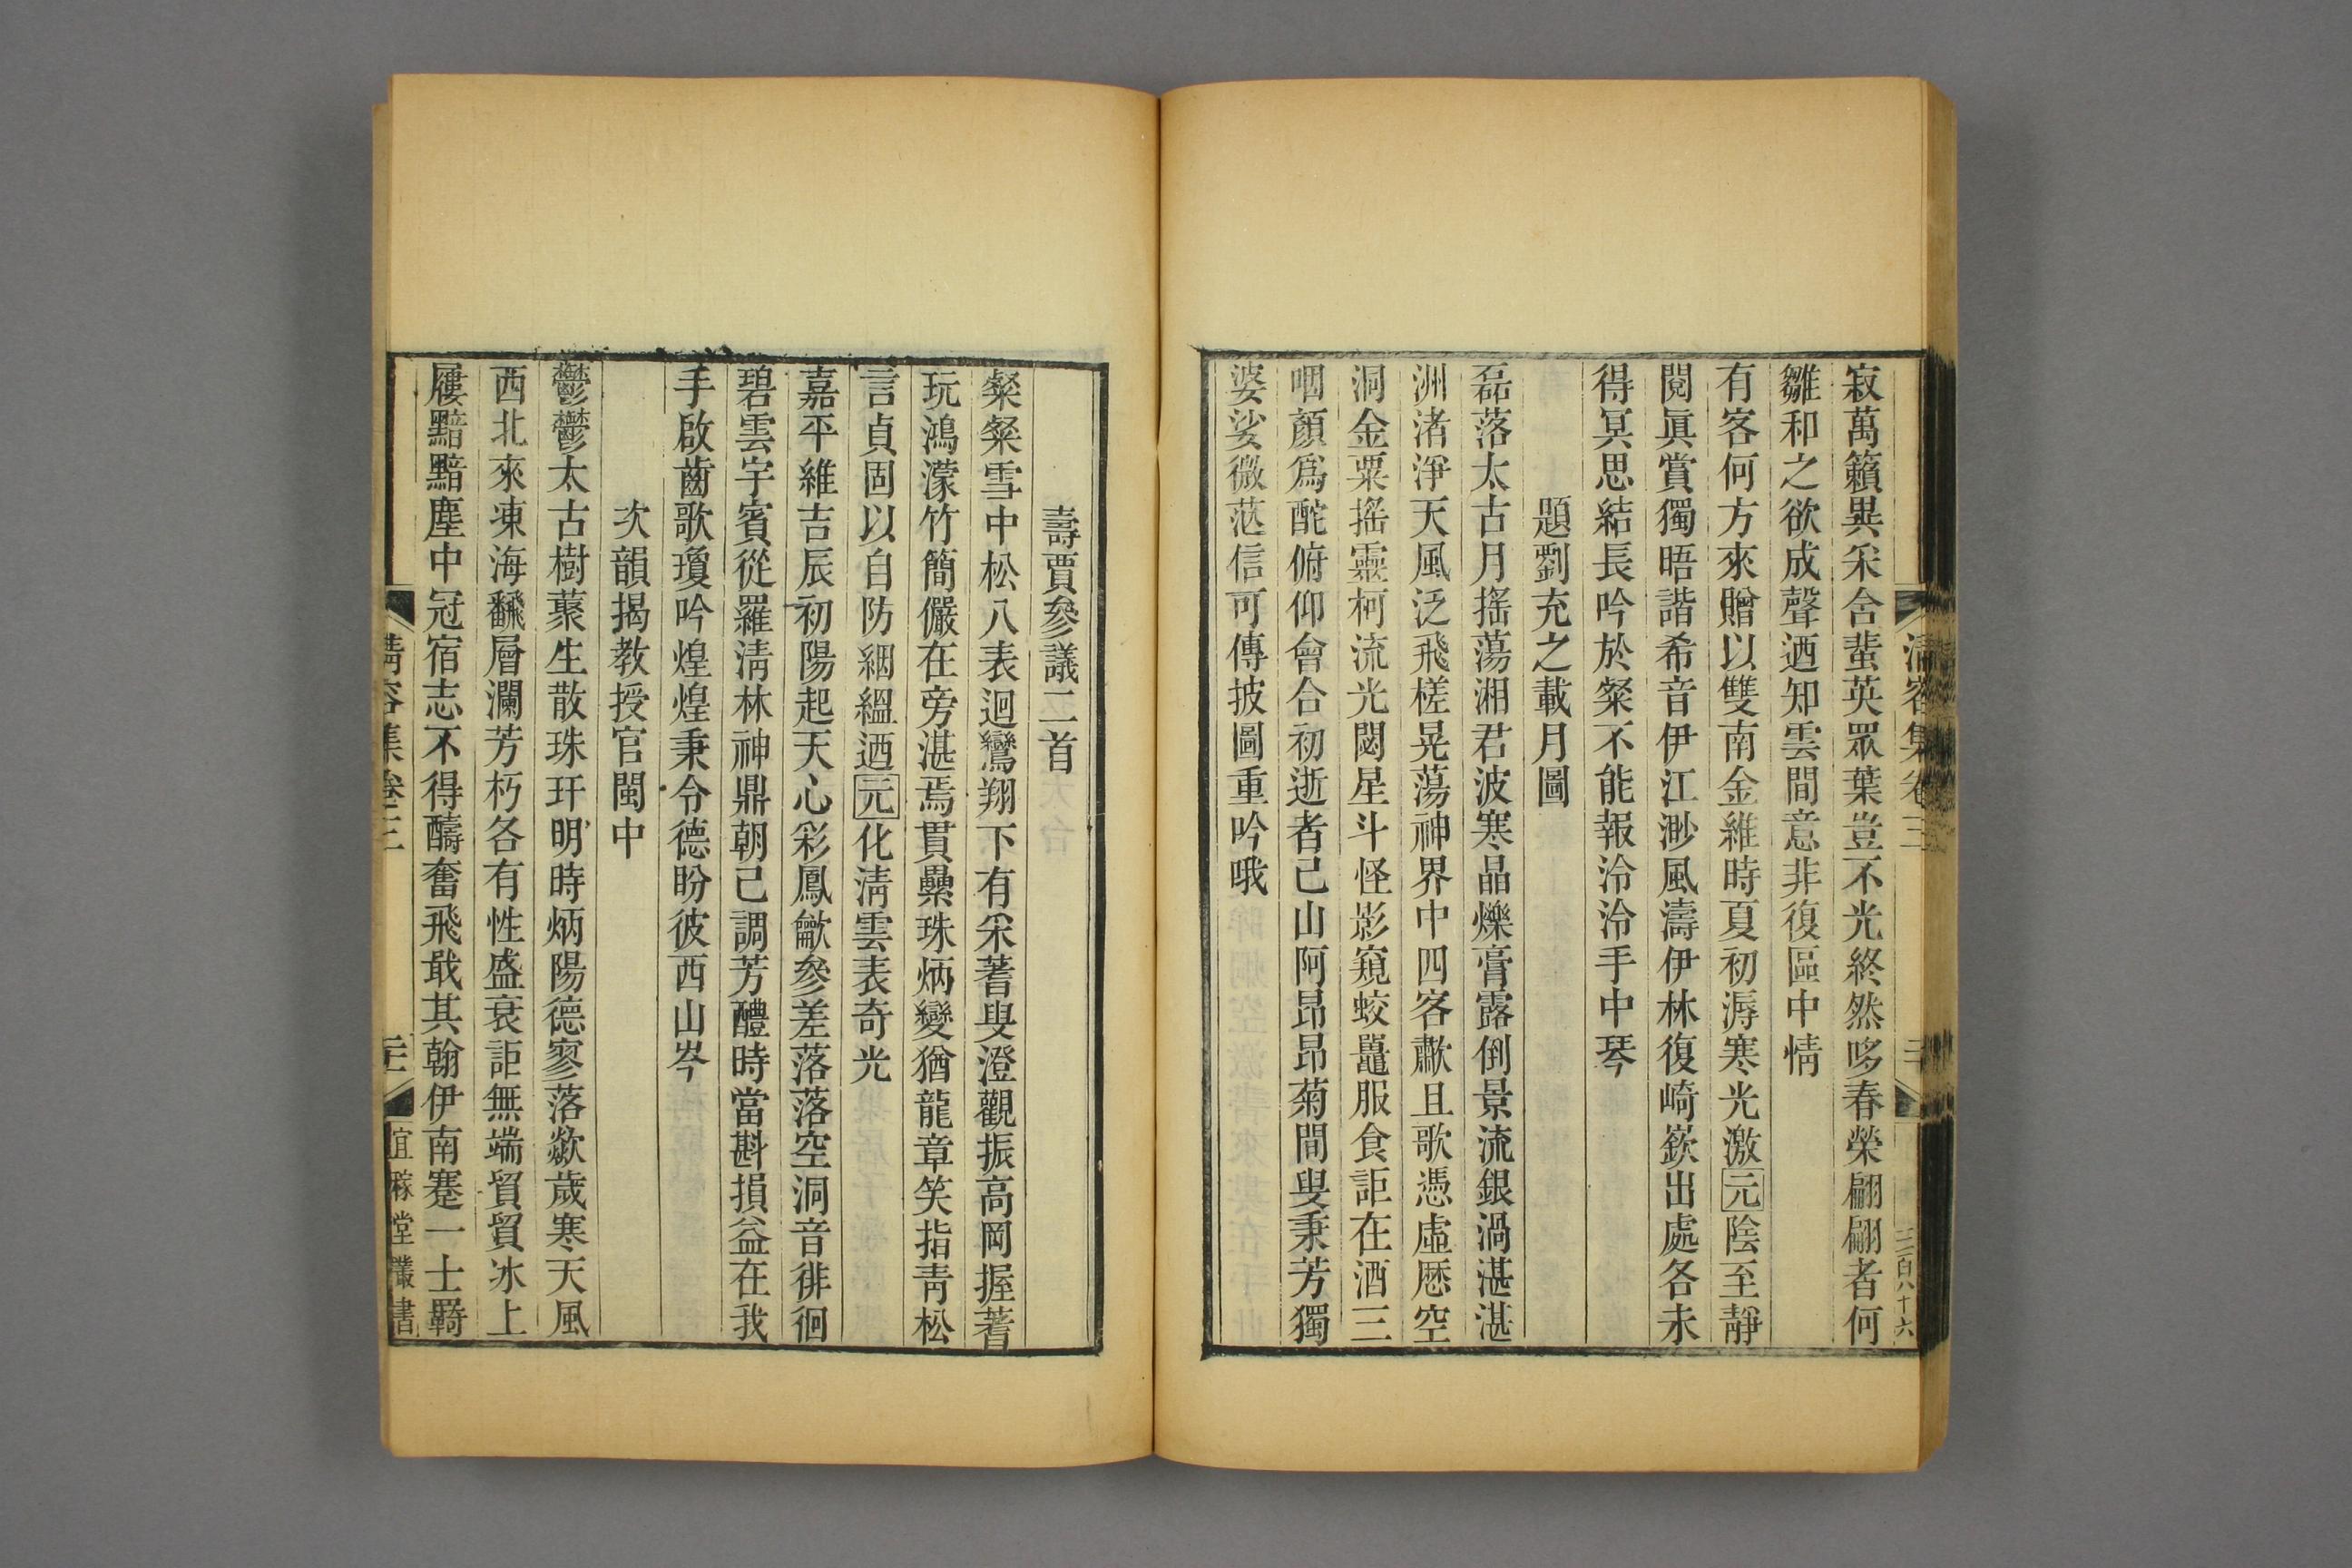 清容集卷三
二
三百八十六
寂萬籟異采含蜚英眾葉豈不光終然哆春榮翩翩者何
雛和之欲成聲迺知雲間意非復區中情
有客何方來贈以雙南金維時夏初溽寒光激元陰至靜
閱眞賞獨晤諧希音伊江渺風濤伊林復崎嶔出處各未
得冥思結長吟於粲不能報泠泠手中琴
題劉充之載月圖
磊落太古月搖蕩湘君波寒晶爍膏露倒景流銀渦湛湛
洲渚淨天風泛飛槎晃蕩神界中四客歗且歌憑虛歷空
洞金粟搖靈柯流光閟星斗怪影窺蛟鼉服食詎在酒三
咽顏爲酡俯仰會合初逝者已山阿昂昂菊間叟秉芳獨
婆娑微茫信可傳披圖重吟哦
壽賈參議二首
粲粲雪中松八表迴鸞翔下有采蓍叟澄觀振高岡握蓍
玩鴻濛竹簡儼在旁湛焉貫纍珠炳變猶龍章笑指青松
言貞固以自防絪縕迺元化淸雲表奇光
嘉平維吉辰初陽起天心彩鳳歙參差落落空洞音徘徊
碧雲宇賓從羅淸林神鼎朝已調芳醴時當斟損益在我
手啟齒歌瓊吟煌煌秉令德盼彼西山岑
次韻揭教授官閩中
鬱鬱太古樹藂生散珠玕明時炳陽德寥落歘歲寒天風
西北來東海飜層瀾芳朽各有性盛衰詎無端貿貿冰上
屨黯黯塵中冠宿志不得醻奮飛戢其翰伊南蹇一士羇
清容集卷三
三
宜稼堂叢書